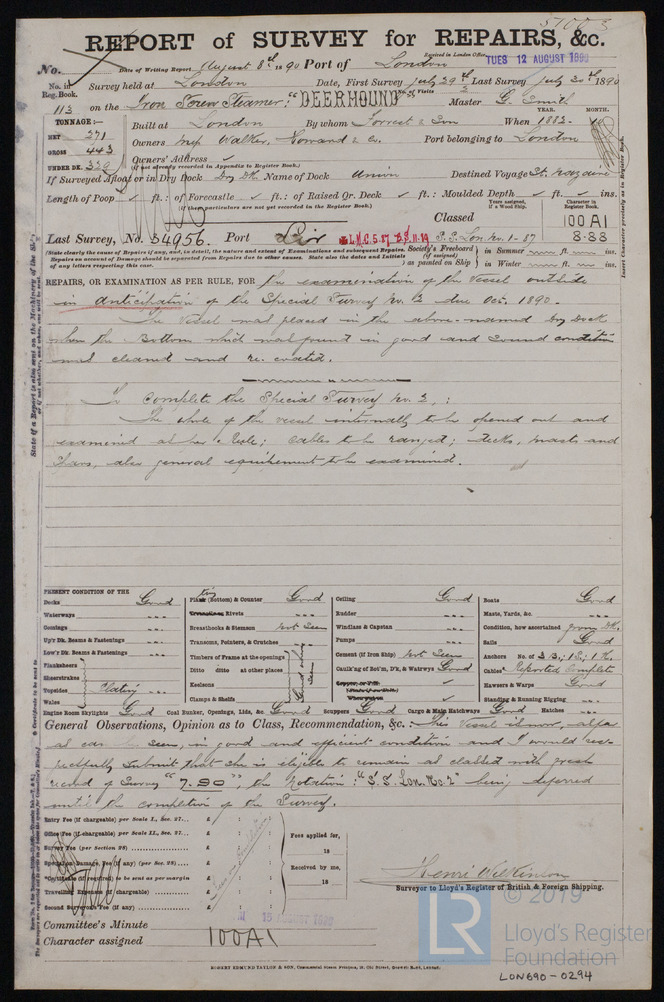 57003
REPORT of SURVEY for REPAIRS, &c.
Received in London Office, TUES 12 AUGUST 1890
No. Date of Writing Report August 8th 1890 Port of London
No. in Reg. Book. Survey held at London Date, First Survey July 29th Last Survey July 30th 1890
113 on the Iron Screw Steamer: "DEERHOUND" No. of Visits 2 Master G. Smith
TONNAGE:— YEAR. MONTH.
NET 271 Built at London By whom Forrest & Son When 1882. 10
GROSS 443 Owners Messrs Walker, Howard & Co. Port belonging to London
UNDER DK. Owners' Address ✓
(if not already recorded in Appendix to Register Book.)
If Surveyed Afloat or in Dry Dock Dry Dk Name of Dock Union Destined Voyage St. Nazaire
Length of Poop ✓ ft.: of Forecastle ✓ ft.: of Raised Qr. Deck ✓ ft.: Moulded Depth ✓ ft. ✓ ins.
(if these particulars are not yet recorded in the Register Book.)
Years assigned, if a Wood Ship. Character in Register Book.
Classed 100A1
Last Survey, No. 34956. Port L.M.C. 5.87 S.S. Lon. No. 1-87 8.88
(State clearly the cause of Repairs if any, and, in detail, the nature and extent of Examinations and subsequent Repairs. Repairs on account of Damage should be separated from Repairs due to other causes. State also the dates and initials of any letters respecting this case.
Society's Freeboard (if assigned) as painted on Ship in Summer ft. ins.
in Winter ft. ins.
REPAIRS, OR EXAMINATION AS PER RULE, FOR the examination of the vessel outside
in anticipation of the Special Survey No. 2 due Oct. 1890.
The vessel was placed in the above-named Dry Dock
when the Bottom which was found in good and sound condition
was cleaned and re-coated.
To complete the Special Survey No. 2,:
The whole of the vessel internally to be opened out and
examined as per Rule; cables to be ranged; decks, masts and
spars, also general equipment to be examined.
PRESENT CONDITION OF THE
Decks Good
Waterways
Comings
Up'r Dk. Beams & Fastenings
Low'r Dk. Beams & Fastenings
Planksheers
Sheerstrakes
Topsides Plating
Wales
Engine Room Skylights Good
Plating (Bottom) & Counter Good
Rivets
Breasthooks & Stemson Not Seen
Transoms, Pointers, & Crutches
Timbers of Frame at the openings
Ditto ditto at other places
Keelsons
Clamps & Shelfs
Coal Bunker, Openings, Lids, &c. Good
Ceiling Good
Rudder
Windlass & Capstan
Pumps
Cement (if Iron Ship) Not Seen
Caulk'g of Bot'm, D'k, & Watrwys Good
Scuppers Good Cargo & Main Hatchways Good
Boats Good
Masts, Yards, &c.
Condition, how ascertained from Dk.
Sails Good
Anchors No. of 3B; 1S; 1K.
Cables Reported Complete
Hawsers & Warps Good
Standing & Running Rigging
Hatches Good
General Observations, Opinion as to Class, Recommendation, &c. :— This Vessel is now, as far
as can seen, in good and efficient condition and I would res-
pectfully submit that she is eligible to remain as classed with fresh
record of Survey "7.90", the Notation: "S.S. Lon. No. 2" being deferred
until the completion of the Survey.
Entry Fee (if chargeable) per Scale I., Sec. 27... £ : :
Office Fee (if chargeable) per Scale II., Sec. 27... £ : :
Survey Fee (per Section 28) £ : :
Special or Damage Fee (if any) (per Sec. 28) £ : :
Certificate (if required) to be sent as per margin £ : :
Travelling Expenses (if chargeable) £ : :
Second Surveyor's Fee (if any) £ : :
Fees applied for,
18
Received by me,
18
Henri Wilkinson
Surveyor to Lloyd's Register of British & Foreign Shipping.
Committee's Minute 15 AUGUST 1890
Character assigned 100A1
© 2019
LR
Lloyd's Register
Foundation
LON690-0294